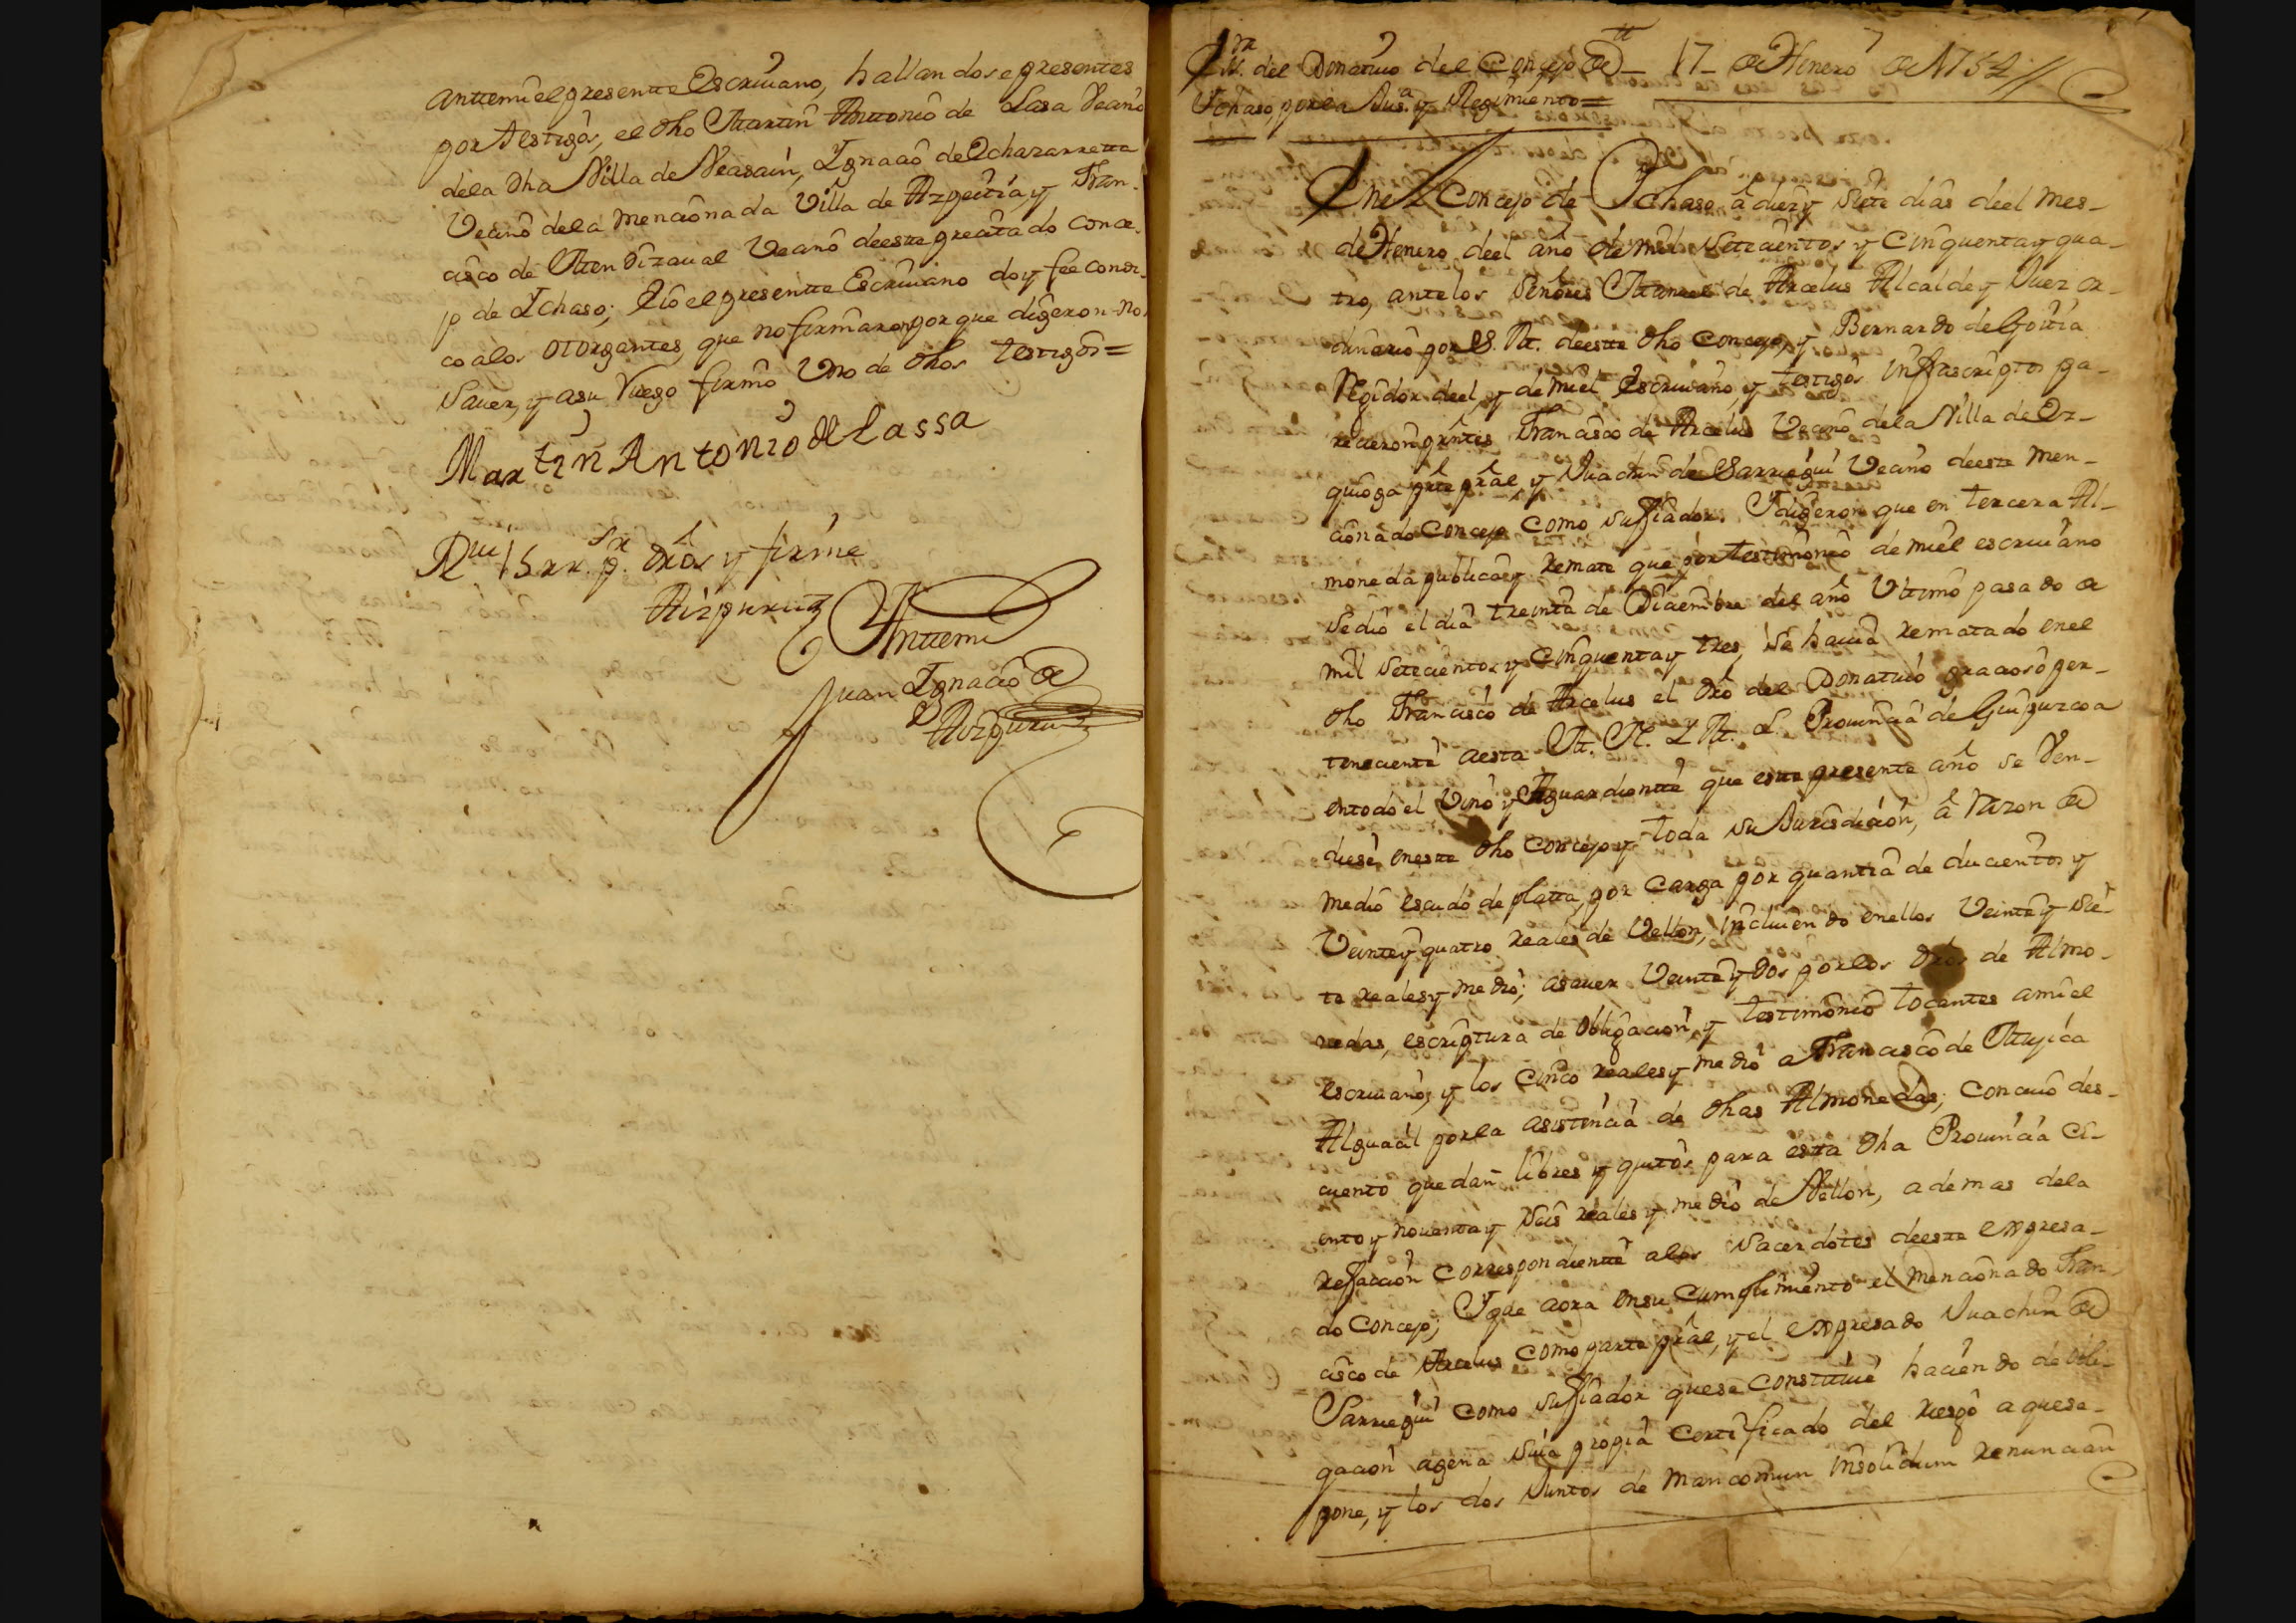 antemi el presentte Escriuano, hallandose presentes
por testigos, el dho Martin Anttonio de Lasa Vecino
dela dha Villa de Veasain, Ygnacio de Echazarretta
Vecino dela mencionada Villa de Azpeitia, y Fran-
cisco de Mendizaual Vecino deeste precitado conce-
jo de Ychaso; E io el presentte Escriuano doy fee conoz-
co alos otorgantes, que no firmaron porque digeron no
sauer, y asu ruego firmó uno de dhos testigos=
Martin Antonio de Lassa
Aizpuru
Anttemi
Juan Ygnacio de
Aizpuru
del Donatiuo del Concejo de 17 de Henero de 1754//
Ychaso, por la Jusª. y Regimiento=
Enel Concejo de Ychaso á diez y siete dias deel mes
de Henero deel año de mil settecientos y cinquenta y qua-
tro, antelos Señores Manuel de Arcelus Alcalde y Juez or-
dinario por S. M. deestte dho Concejo, y Bernardo de Goitia
Regidor deel, y de mi el Escriuano y testigos infrascriptos pa-
recieron presentes Francisco de Arcelus Vecino dela Villa de Or-
quioga prte pral, y Juachin de Sarriegui Vecino deeste men-
cionado Concejo como su fiador. Y digeron que en tercera Al-
moneda publica y remate que por testimonio de mi el escriuano
se dió el dia treinta de Diciembre del año Ultimo pasado de
mil settecientos y cinquenta y tres, se hauia rematado enel
dho Francisco de Arcelus el dro del Donatiuo gracioso per-
teneciente aesta M. N. Y M. L. Prouincia de Guipuzcoa
entodo el Vino y Aguardientte que este presente año se Ven-
diese, eneste dho Concejo y toda su Jurisdicion, á razon de
medio escudo de platta, por carga por quantia de ducientos y
Veinte y quatro reales de Vellon, incluiendo enellos Veinte y sie-
te reales y medio; asauer Veinte y dos por los dros de Almo-
nedas, escriptura de obligacion, y testimonio tocantes ami el
escriuano, y los cinco reales y medio a Francisco de Mujica
Alguacil porla asistencia de dhas Almonedas, concuio des-
cuento quedan libres y quitos para esta dha Prouincia ci-
ento y nouenta y seis reales y medio de Vellon, ademas dela
refaccion correspondientte alos Sacerdotes deeste expresa-
do Concejo; Y que aora ensu cumplimiento el mencionado Fran-
cisco de Arcelus como parte pral, y el expresado Juachin de
Sarriegui como su fiador quese constituie haciendo de obli-
gacion agena suia propia certificado del riesgo a quese
pone, y los dos Juntos de mancomun insolidum renunciando